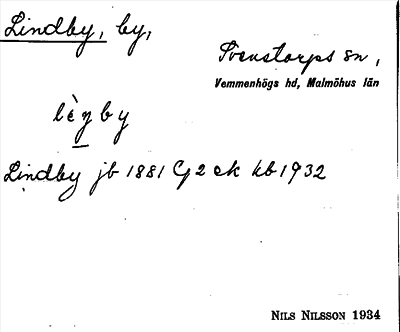 Lindby, by,
Svenstorps sn,
Vemmenhögs hd, Malmöhus län
lèŋby
Lindby jb 1881 G 2 ek kb 1932
NILS NILSSON 1934